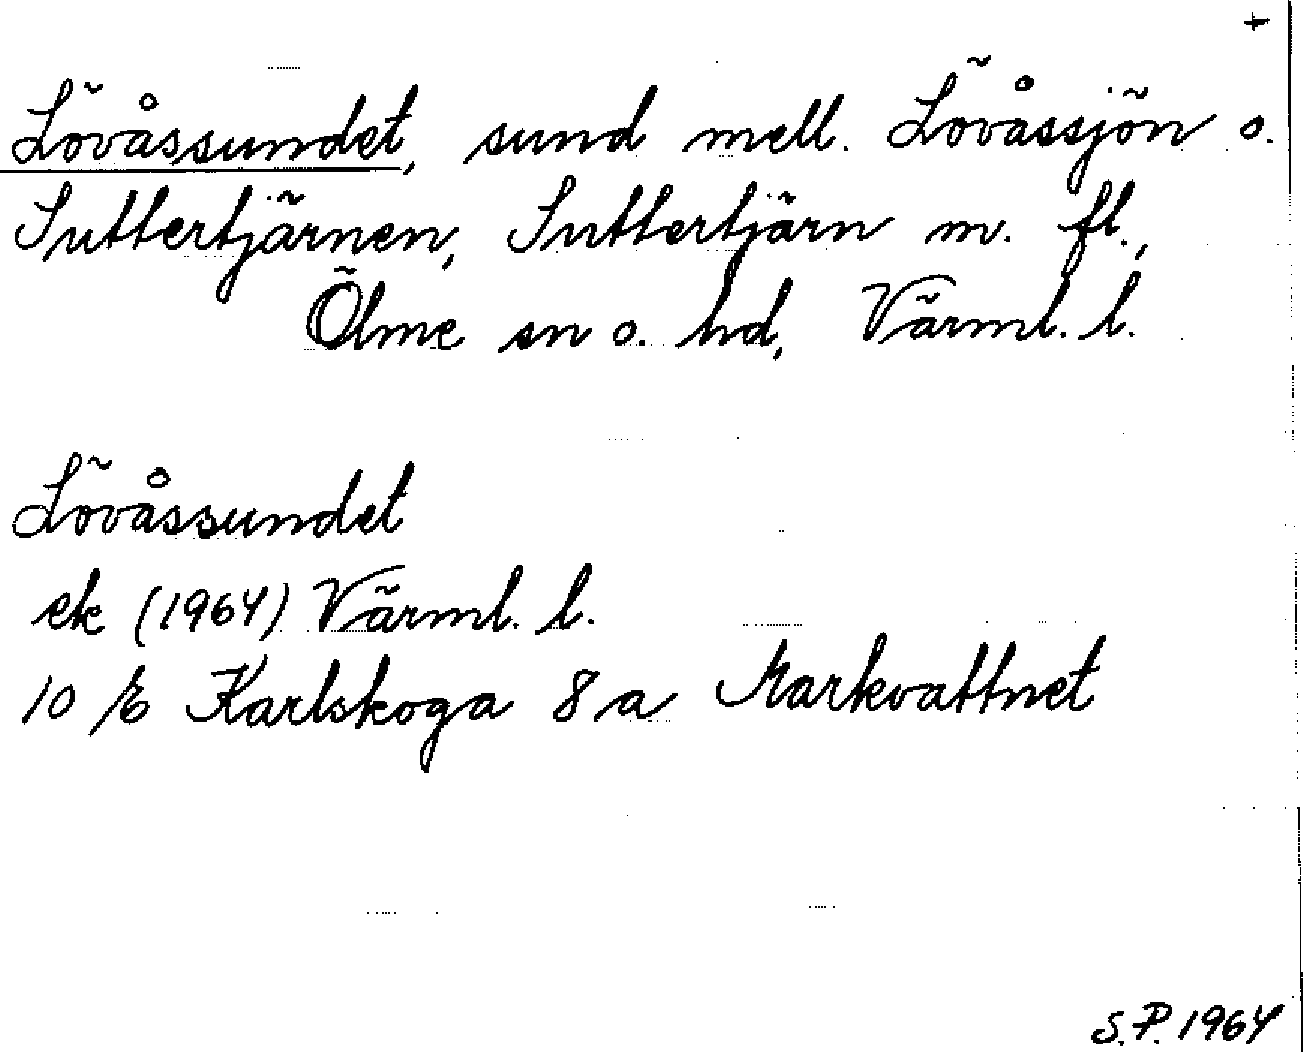 +
Lövåssundet, sund mell. Lövåssjön o.
Suttertjärnen, Suttertjärn m. fl.,
Ölme sn o. hd, Värml. l.
Lövåssundet
ek (1964) Värml. l.
10 E Karlskoga 8 a Markvattnet
S.P. 1964